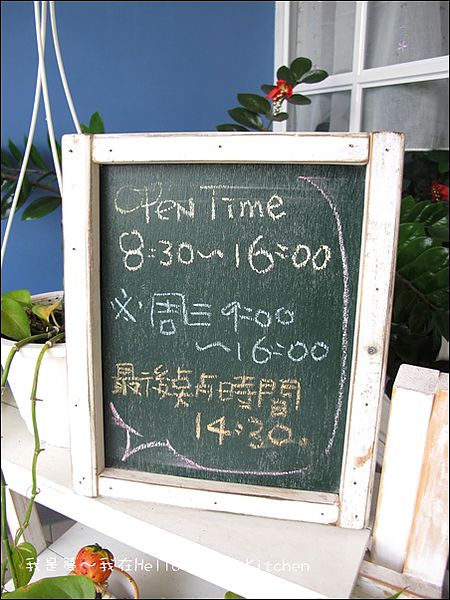 OPEN Time
8:30～16:00
※周三 9:00
～16:00
最後点餐時間
14:30.
我是夢～我在Hello Kitchen